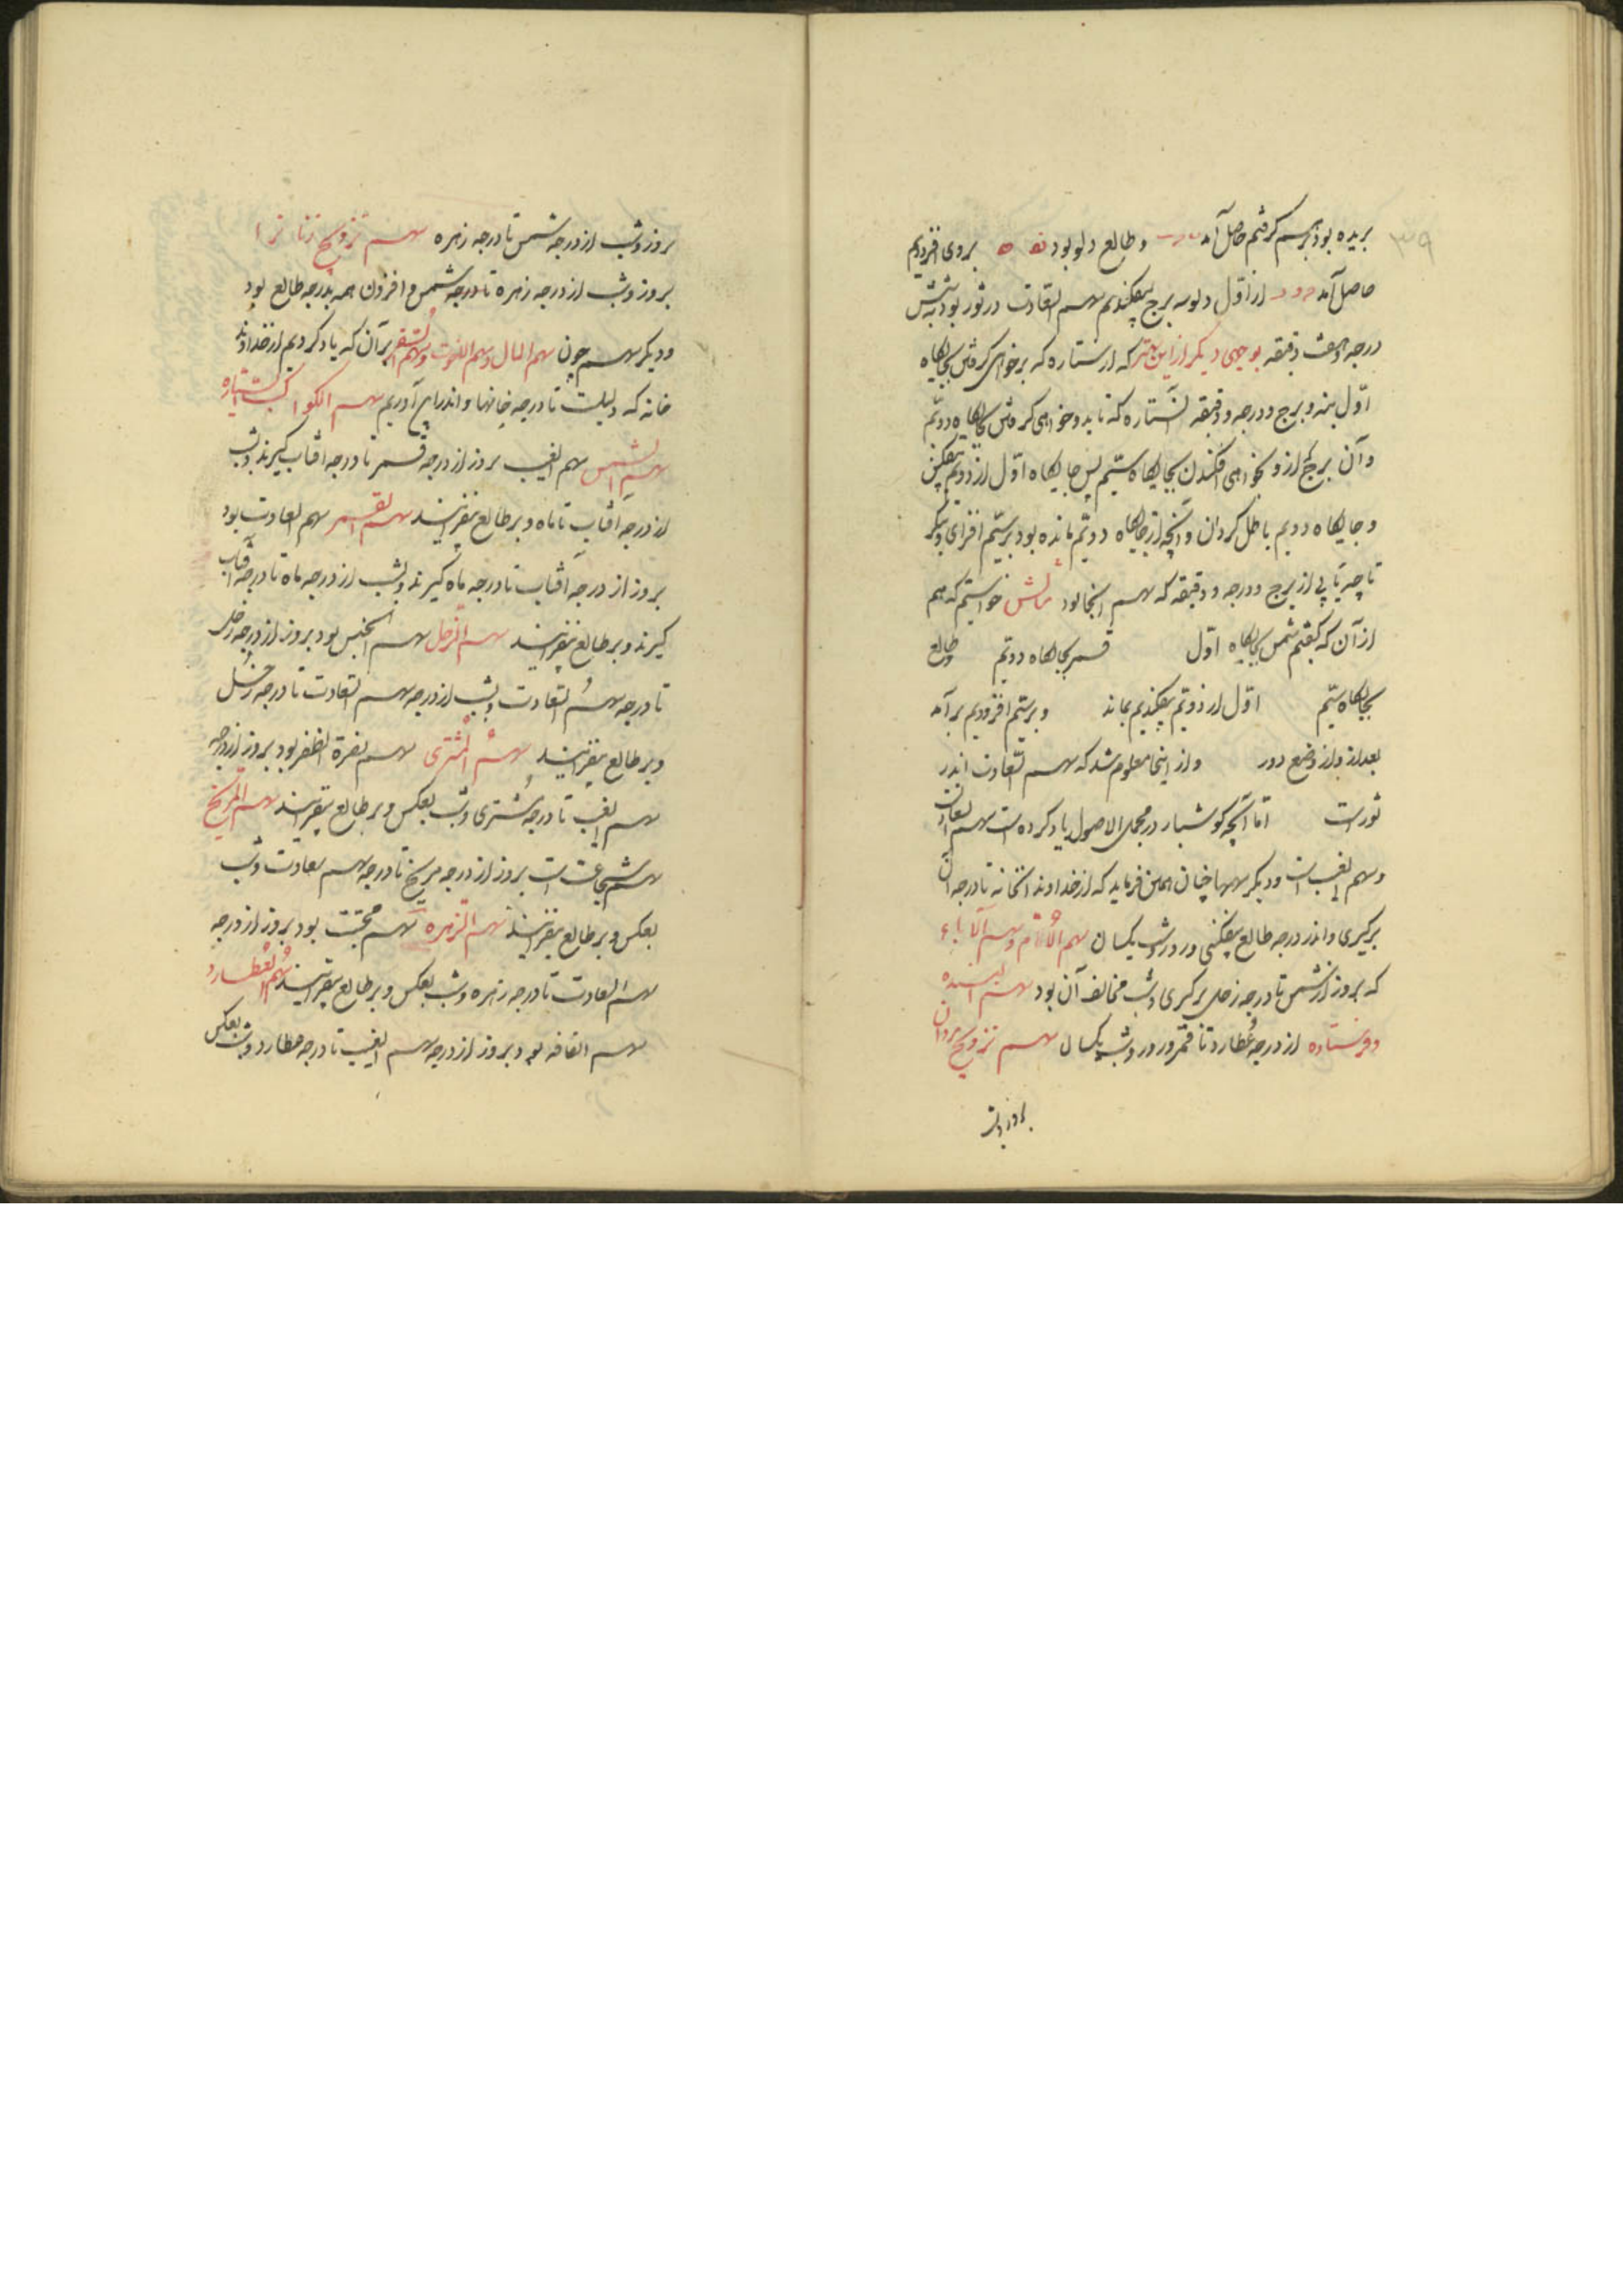 ۳۹
بریده بود برهم گرفتیم حاصل آمد و طالع دلو بود بروی افزودیم
حاصل آمد از اول دلو سه برج بیفکندیم سهم السعادت در ثور بود به شش
درجه و دقیقه بوجهی دیگر ازین بهتر که از ستاره که برخواهی گرفتن بجایگاه
اوّل بنه و برج و درجه و دقیقه آن ستاره که تا بدو خواهی گرفتن بجایگاه دویّم
و آن برج که ازو بخواهی افکندن بجایگاه سیّم پس جایگاه اوّل از دویّم بیفکن
و جایگاه دویم باطل کردان و آنچه از جایگاه دویّم مانده بود بر سیّم افزای و بنگر
تا چه یابی از برج و درجه و دقیقه که سهم آنجا بود مثالش خواستیم که هم
از آن که گفتیم شمس بجایگاه اوّل قمر بجایگاه دویّم و طالع
بجایگاه سیّم اوّل از دویّم بیفکندیم بماند و بر سیّم افزودیم برآمد
بعد از وضع دور و از اینجا معلوم شد که سهم السّعادت اندر
ثورست امّا آنچه کوشیار در مجمل الاصول یاد کرده است سهم السعادت
و سهم الغیب است و دیگر سهمها چنان همی فرماید که از خداوند آن خانه تا درجه آن
برگیری و از درجه طالع بیفکنی و روز و شب یکسان سهم الأمّ و سهم الآباء
که بروز از شمس تا درجه زحل برگیری و شب مخالف آن بود سهم بنده
و فرستاده از درجه عُطارد تا قمر و روز و شب یکسان سهم تزویج مردان
بروز و شب
بروز و شب از درجه شمس تا درجه زهره سهم تزویج زنانرا
بروز و شب از درجه زهره تا درجه شمس و افزون همه بدرجه طالع بود
و دیگر سهم چون سهم المال و سهم الموت و سهم السفر بر آن که یاد کردیم از خداوند
خانه که دلیلست تا درجه خانها و اندرین آوریم سهم الکواکب السیّاره
سهم الشمس سهم الغیب بروز از درجه قمر تا درجه آفتاب گیرند و بشب
از درجه آفتاب تا ماه و بر طالع بیفزایند سهم القمر سهم السعادت بود
بروز از درجه آفتاب تا درجه ماه گیرند و بشب از درجه ماه تا درجه آفتاب
گیرند و بر طالع بیفزایند سهم الزحل سهم الحبس بود بروز از درجه زحل
تا درجه سهم السعادت و بشب از درجه سهم السعادت تا درجه زحل
و بر طالع بیفزایند سهم المشتری سهم نصرة الظفر بود بروز از درجه
سهم الغیب تا درجه مشتری و شب بعکس و بر طالع بیفزایند سهم المریخ
سهم شجاعت است بروز از درجه مریخ تا درجه سهم سعادت و شب
بعکس و بر طالع بیفزایند سهم الزهره سهم محبّت بود بروز از درجه
سهم السعادت تا درجه زهره و شب بعکس و بر طالع بیفزایند سهم العطارد
سهم بود بروز از درجه سهم الغیب تا درجه عطارد و شب بعکس